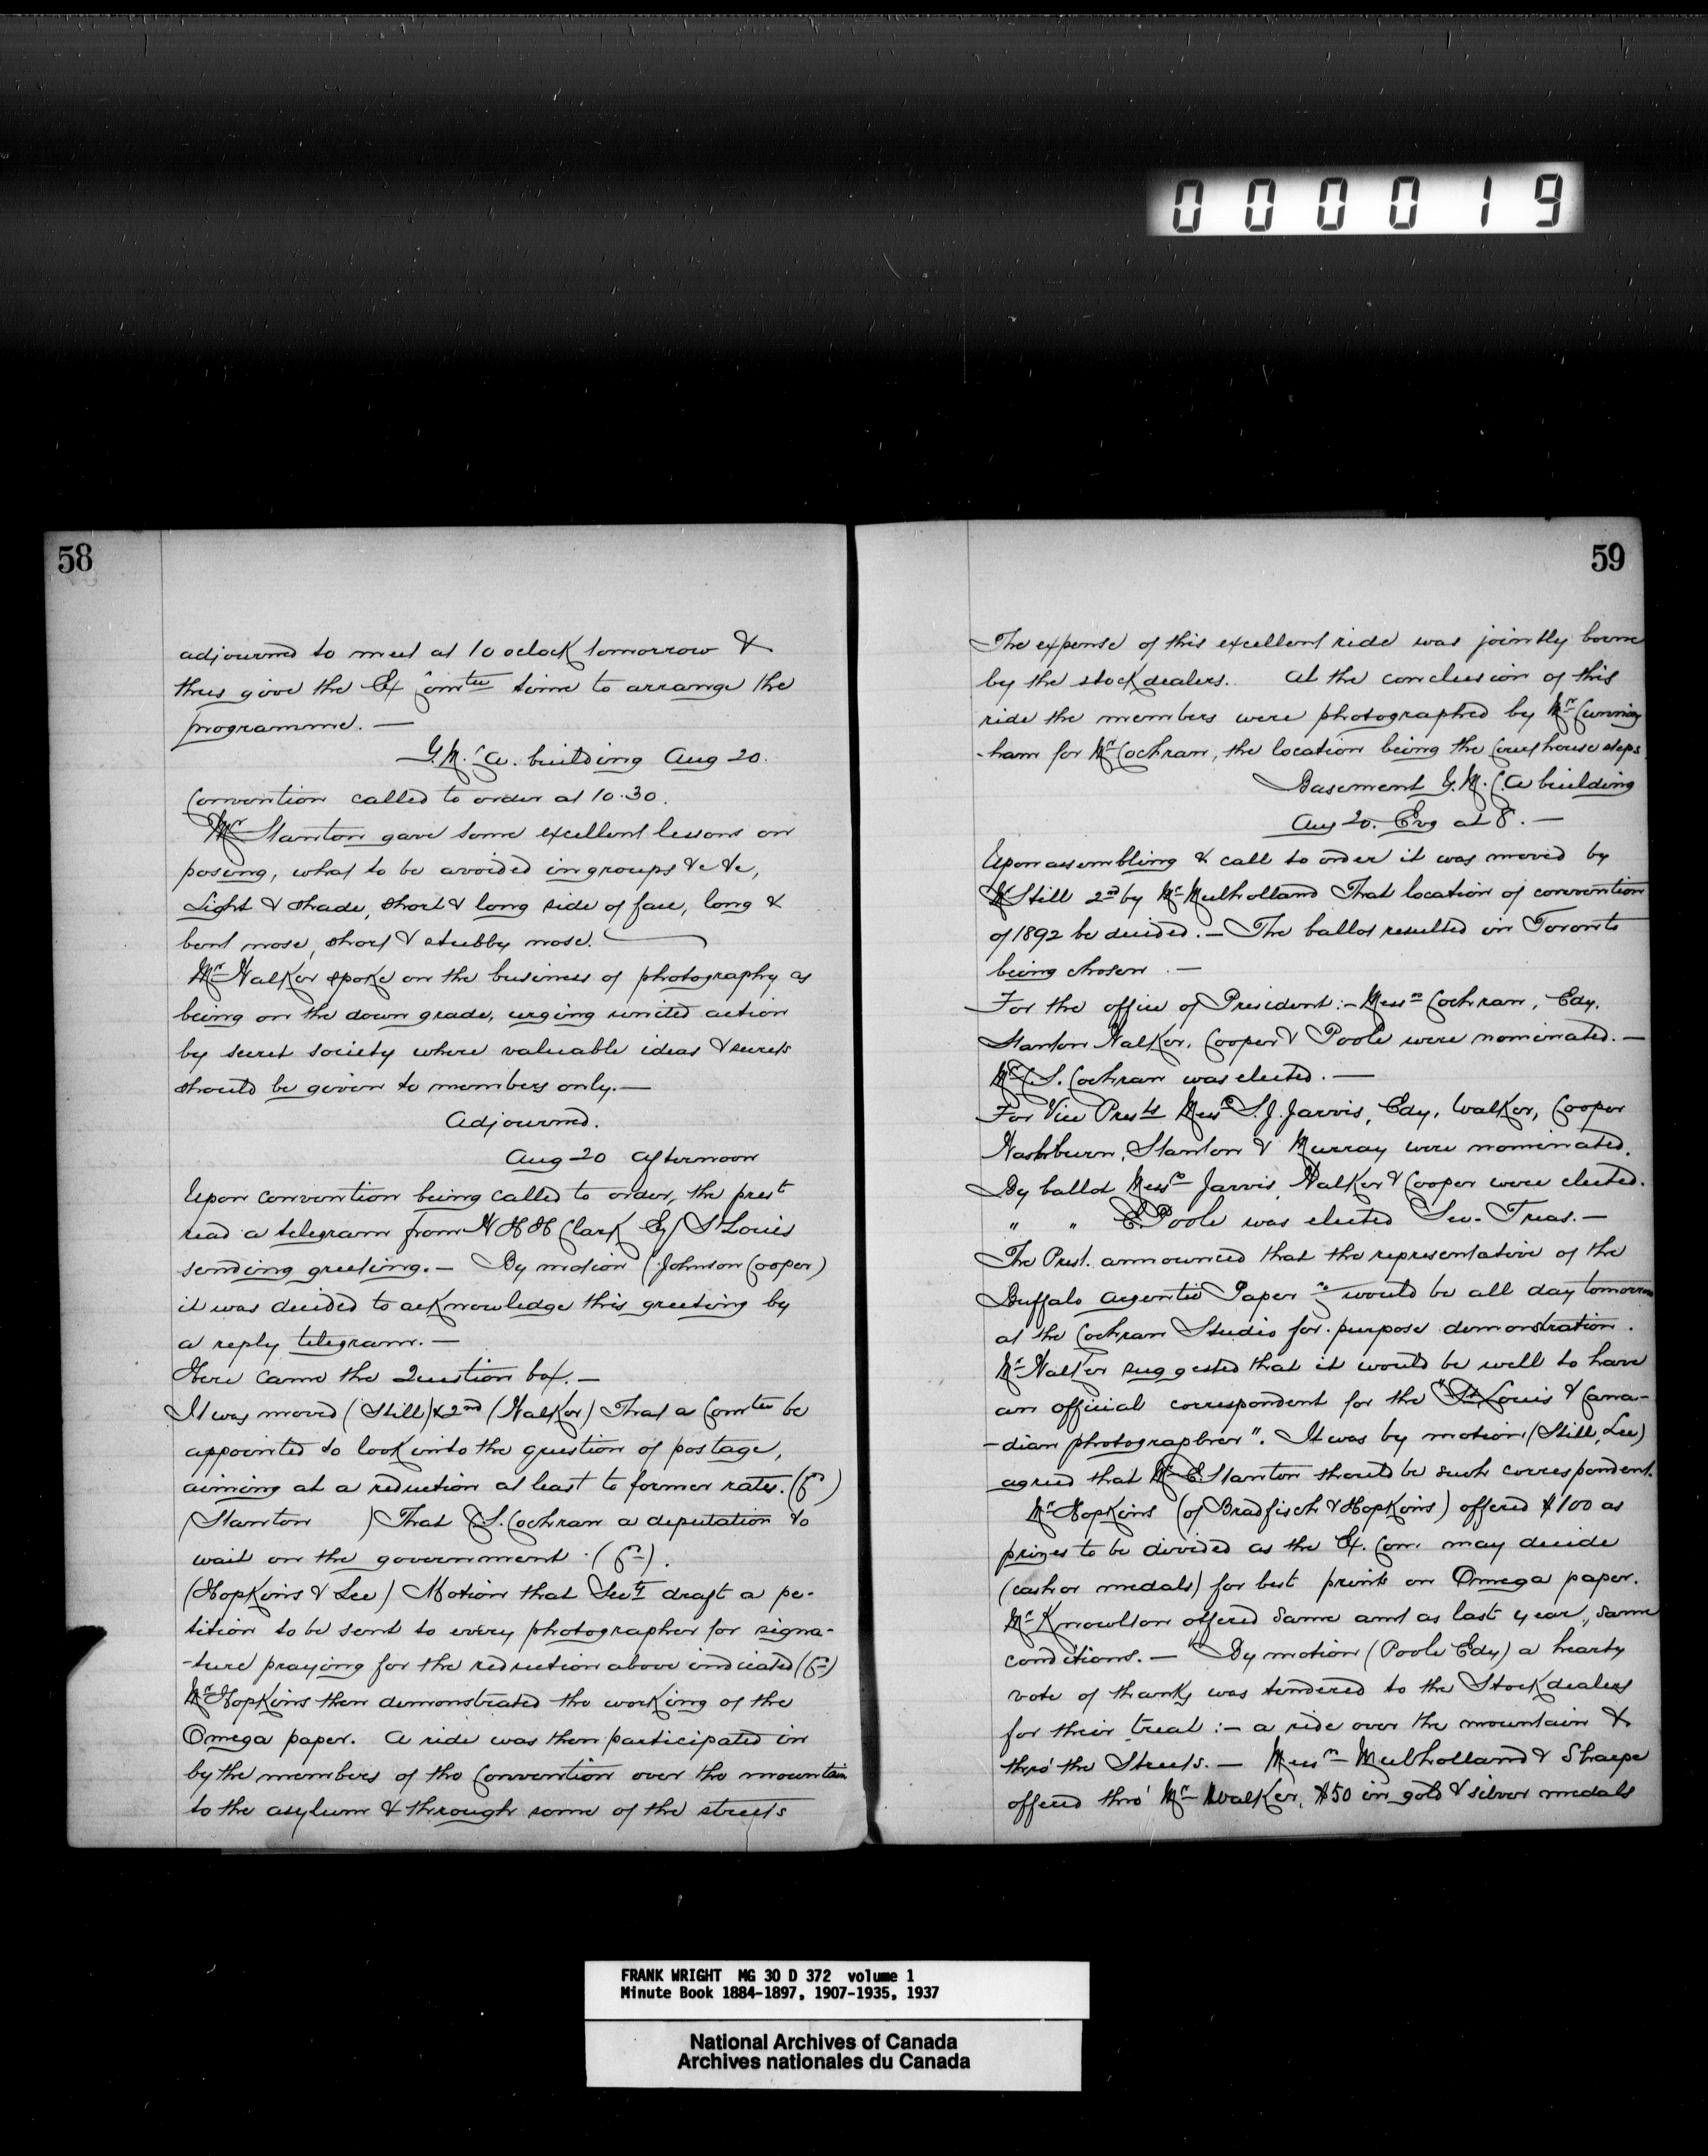 000019
58
adjourned to meet at 10 oclock tomorrow &
thus give the Ex Comtee time to arrange the
programme. —
Y.M.C.A. building Aug 20.
Convention called to order at 10.30.
Mr Stanton gave some excellent lessons on
posing, what to be avoided in groups &c &c,
Light & shade, short & long side of face, long &
bent nose, short & stubby nose.
Mr Walker spoke on the business of photography as
being on the down grade, urging united action
by secret society where valuable ideas & secrets
should be given to members only. —
Adjourned.
Aug 20 afternoon
Upon convention being called to order, the prest
read a telegram from H H Clark Esq St Louis
sending greeting. — By motion (Johnson Cooper)
it was decided to acknowledge this greeting by
a reply telegram. —
Here came the Question box. —
It was moved (Still) & 2nd (Walker) That a Comtee be
appointed to look into the question of postage,
aiming at a reduction at least to former rates. ( )
(Stanton ) That C.S. Cochran a deputation to
wait on the government. ( ).
(Hopkins & Lee) Motion that Secty draft a pe-
tition to be sent to every photographer for signa-
-ture praying for the reduction above indicated ( )
Mr Hopkins then demonstrated the working of the
Omega paper. A ride was then participated in
by the members of the Convention over the mountain
to the asylum & through some of the streets
59
The expense of this excellent ride was jointly borne
by the stockdealers. At the conclusion of this
ride the members were photographed by Mr Cunning
-ham for Mr Cochran, the location being the Courthouse steps.
Basement Y.M.C.A building
Aug 20. Evg at 8. —
Upon assembling & call to order it was moved by
Mr Still 2nd by Mr Mulholland That location of convention
of 1892 be decided. — The ballot resulted in Toronto
being chosen. —
For the office of President: — Messrs Cochran, Edy,
Stanton Walker, Cooper & Poole were nominated. —
Mr C.S. Cochran was elected. —
For Vice Prests Messrs S.J. Jarvis, Edy, Walker, Cooper
Washburn, Stanton & Murray were nominated.
By ballot Messrs Jarvis, Walker & Cooper were elected.
" " E. Poole was elected Sec. Treas. —
The Prest. announced that the representative of the
Buffalo Argentic Paper Co would be all day tomorrow
at the Cochran Studio for purpose demonstration.
Mr Walker suggested that it would be well to have
an official correspondent for the "St Louis & Cana-
-dian photographer". It was by motion (Still, Lee)
agreed that Mr E. Stanton should be such correspondent.
Mr Hopkins (of Bradfisch & Hopkins) offered $100 as
prizes to be divided as the Ex. Com. may decide
(cash or medals) for best prints on Omega paper.
Mr Knowlton offered same amt as last year, same
conditions. — By motion (Poole Edy) a hearty
vote of thanks was tendered to the Stockdealers
for their treat: — a ride over the mountain &
thro' the Streets. — Messrs Mulholland & Sharpe
offered thro' Mr Walker, $50 in gold & silver medals
FRANK WRIGHT MG 30 D 372 volume 1
Minute Book 1884-1897, 1907-1935, 1937
National Archives of Canada
Archives nationales du Canada